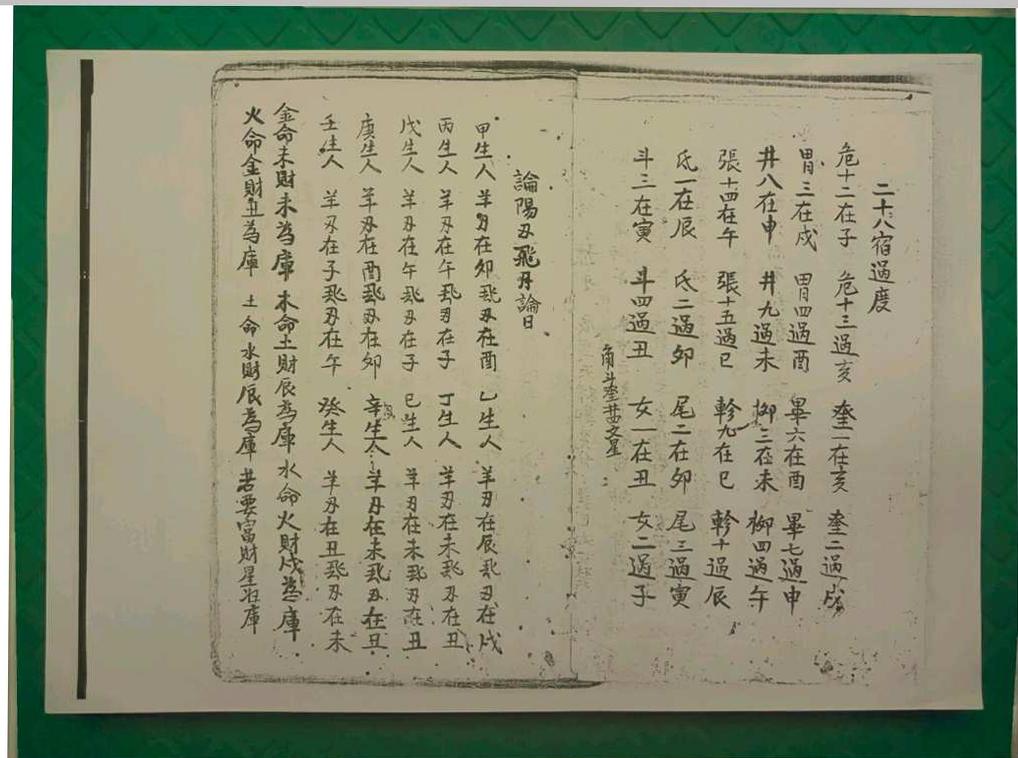 二十八宿過度
危十二在子 危十三過亥 奎一在亥 奎二過戍
胃三在戍 胃四過酉 畢六在酉 畢七過申
井八在申 井九過未 柳三在未 柳四過午
張十四在午 張十五過巳 軫九在巳 軫十過辰
氐一在辰 氐二過卯 尾二在卯 尾三過寅
斗三在寅 斗四過丑 女一在丑 女二過子
角斗奎井文星
論陽刃飛刃論日
甲生人 羊刃在卯飛刃在酉 乙生人 羊刃在辰飛刃在戍
丙生人 羊刃在午飛刃在子 丁生人 羊刃在未飛刃在丑
戊生人 羊刃在午飛刃在子 己生人 羊刃在未飛刃在丑
庚生人 羊刃在酉飛刃在卯 辛生人 羊刃在未飛刃在丑
壬生人 羊刃在子飛刃在午 癸生人 羊刃在丑飛刃在未
金命未財未為庫 木命土財辰為庫 水命火財戍為庫
火命金財丑為庫 土命水財辰為庫 若要富財星在庫